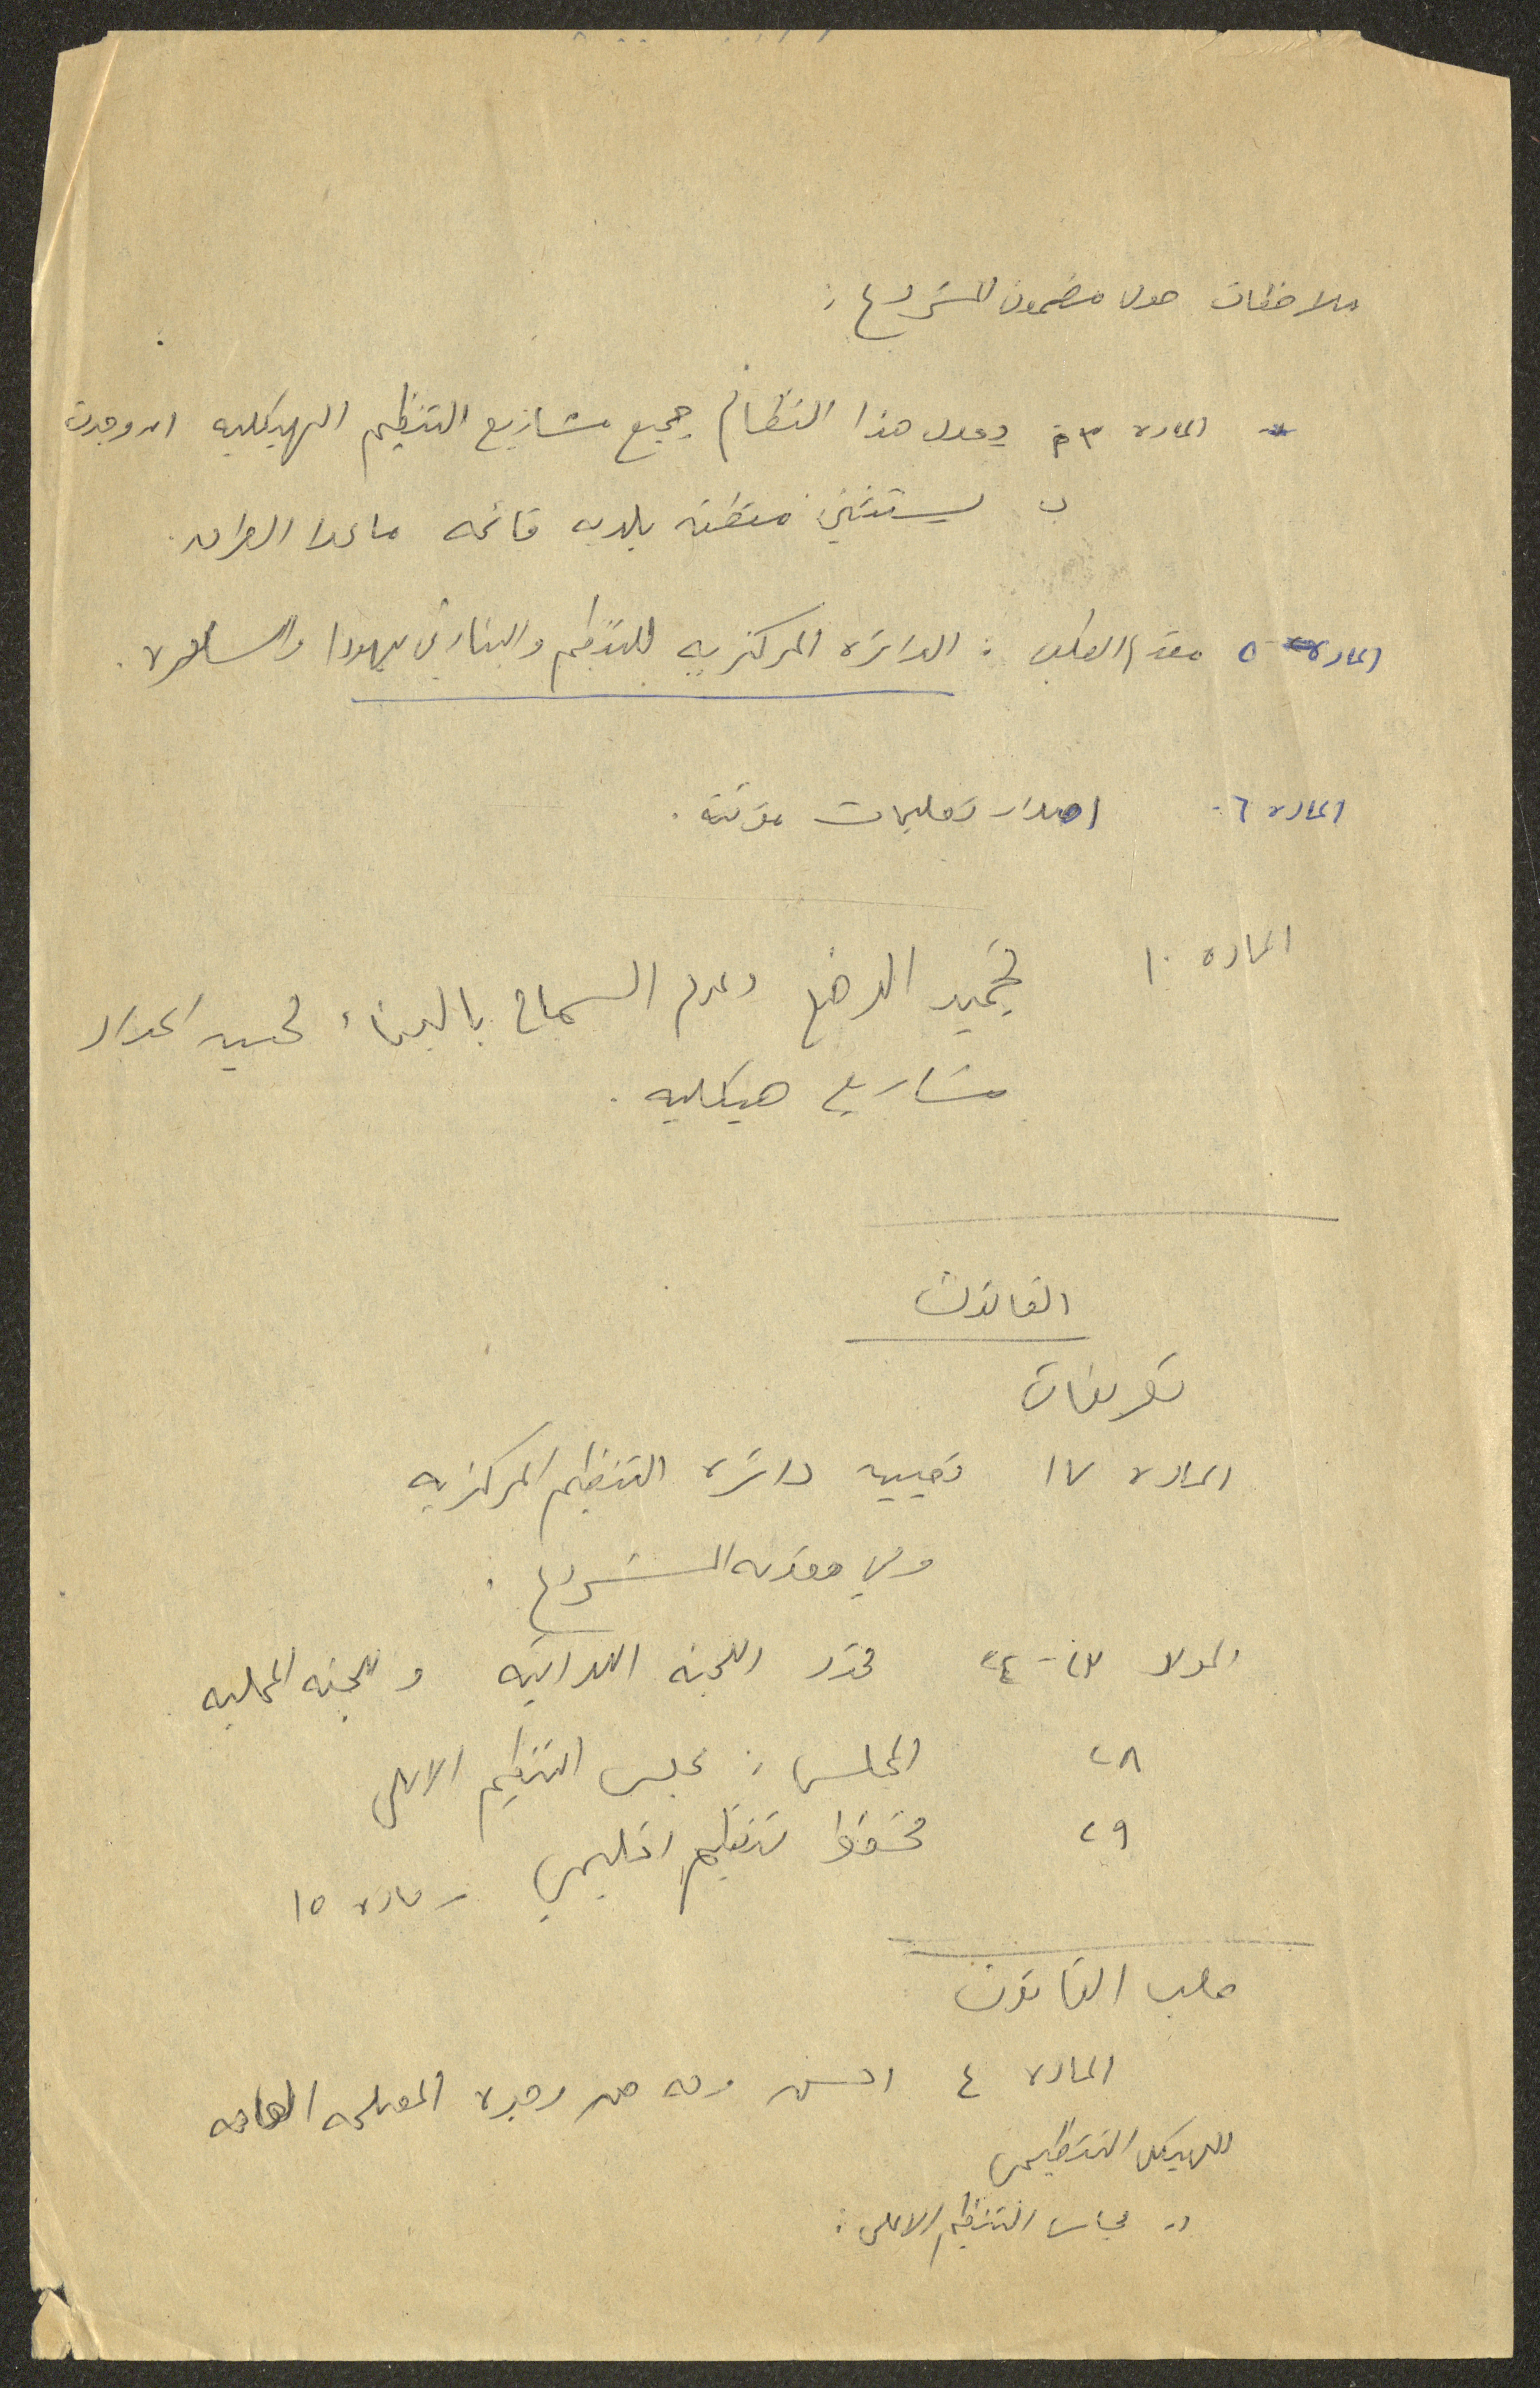 ملاحظات حول مضمون المشروع :
المادة ٣ أ يعدل هذا النظام جميع مشاريع التنظيم الهيكلية ان وجدت
ب يستثنى منطقة بلدية قائمة ماعدا الطرق .
المادة ٥ مقدم الطلب : الدائرة المركزية للتنظيم والبناء في يهودا والسامرة .
المادة ٦ - اصدار تعليمات مؤقتة .
المادة ١٠ تجميد الوضع وعدم السماح بالبناء لحين اعداد
مشاريع هيكلية .
القانون
تعريفات
المادة ١٧ تعيين دائرة التنظيم المركزية
وهي معدة المشروع .
المواد ٢٣ - ٢٤ تحدد اللجنة اللوائية واللجنة المحلية
٢٨ المجلس : مجلس التنظيم الاعلى
٢٩ مخطط تنظيم اقليمي - مادة ١٥
صلب القانون
المادة ٤ المصلحة العامة
الهيكل التنظيمي
د - مجلس التنظيم الاعلى :